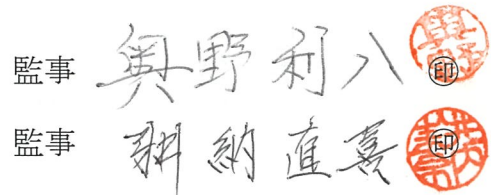 監事 奥野利八 ㊞
監事 耕納直喜 ㊞